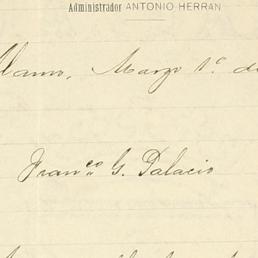 Administrador ANTONIO HERRAN
Alamo, Marzo 1º de
Franco G. Palacio